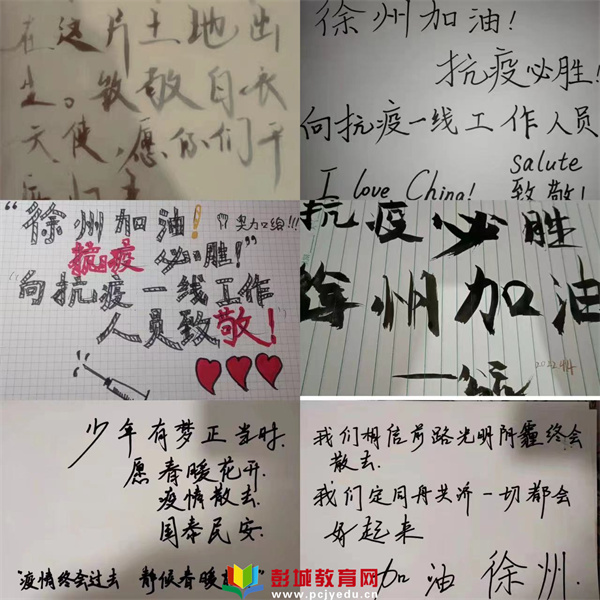 在这片土地出
生。致敬白衣
天使,愿你们平
徐州加油!
抗疫必胜!
向抗疫一线工作人员
salute
I love China! 致敬!
"徐州加油!
抗疫 必胜!"
"向抗疫一线工作
人员致敬!
抗疫必胜
徐州加油
少年有梦正当时.
愿春暖花开.
疫情散去.
国泰民安.
疫情终会过去 静候春暖
我们相信前路光明阴霾终会
散去.
我们定同舟共济一切都会
好起来
加油 徐州.
彭城教育网
www.pcjyedu.cn